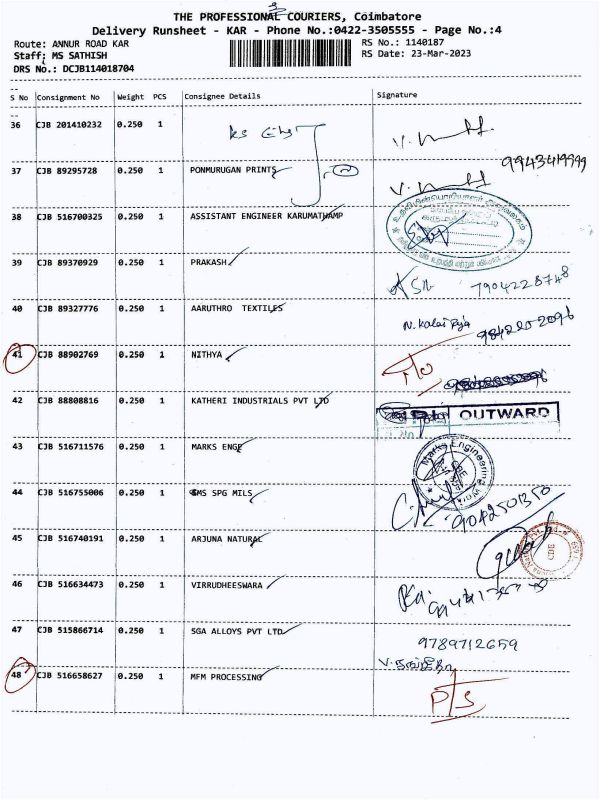 THE PROFESSIONAL COURIERS, Coimbatore
Delivery Runsheet - KAR - Phone No.:0422-3505555 - Page No.:4
Route: ANNUR ROAD KAR
RS No.: 1140187
Staff: MS SATHISH
RS Date: 23-Mar-2023
DRS No.: DCJB114018704
S No Consignment No Weight PCS Consignee Details Signature
36 CJB 201410232 0.250 1
37 CJB 89295728 0.250 1 PONMURUGAN PRINTS
9943419999
38 CJB 516700325 0.250 1 ASSISTANT ENGINEER KARUMATHAMP
39 CJB 89370929 0.250 1 PRAKASH
7904228748
40 CJB 89327776 0.250 1 AARUTHRO TEXTILES N. Kalai Raja 9842202096
41 CJB 88902769 0.250 1 NITHYA
42 CJB 88808816 0.250 1 KATHERI INDUSTRIALS PVT LTD OUTWARD
43 CJB 516711576 0.250 1 MARKS ENGE Marks Engineering Work
44 CJB 516755006 0.250 1 GMS SPG MILS
9042501350
45 CJB 516740191 0.250 1 ARJUNA NATURAL
CDE
46 CJB 516634473 0.250 1 VIRRUDHEESWARA
47 CJB 515866714 0.250 1 SGA ALLOYS PVT LTD 9789712659
48 CJB 516658627 0.250 1 MFM PROCESSING